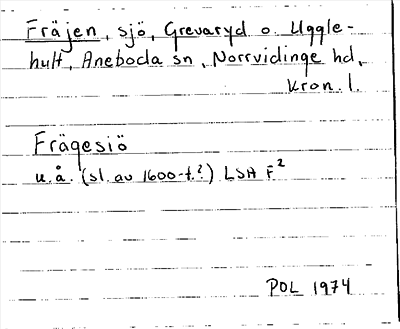 Fräjen, sjö, Grevaryd o. Uggle-
hult, Aneboda sn, Norrvidinge hd,
Kron. l.
Frägesiö
u.å. (sl. av 1600-t.?) LSA F²
POL 1974